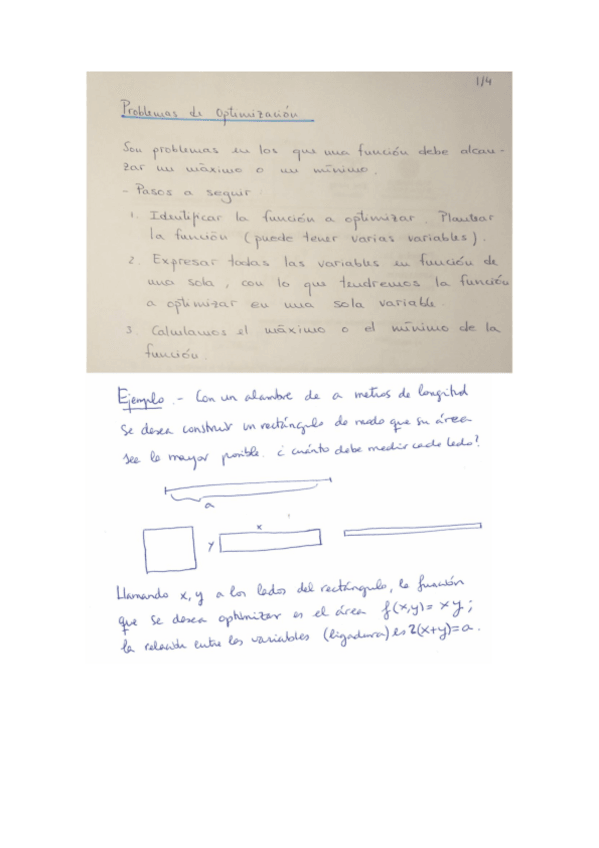 1/4
Problemas de Optimización
Son problemas en los que una función debe alcan-
zar un máximo o un mínimo.
- Pasos a seguir
1. Identificar la función a optimizar. Plantear
la función (puede tener varias variables).
2. Expresar todas las variables en función de
una sola, con lo que tendremos la función
a optimizar en una sola variable
3 Calculamos el máximo o el mínimo de la
función.
Ejemplo.- Con un alambre de a metros de longitud
se desea construir un rectángulo de modo que su área
sea lo mayor posible. ¿cuánto debe medir cada lado?
a
x
y
Llamando x, y a los lados del rectángulo, la función
que se desea optimizar es el área f(x,y)= xy;
la relación entre las variables (ligadura) es 2(x+y)=a.